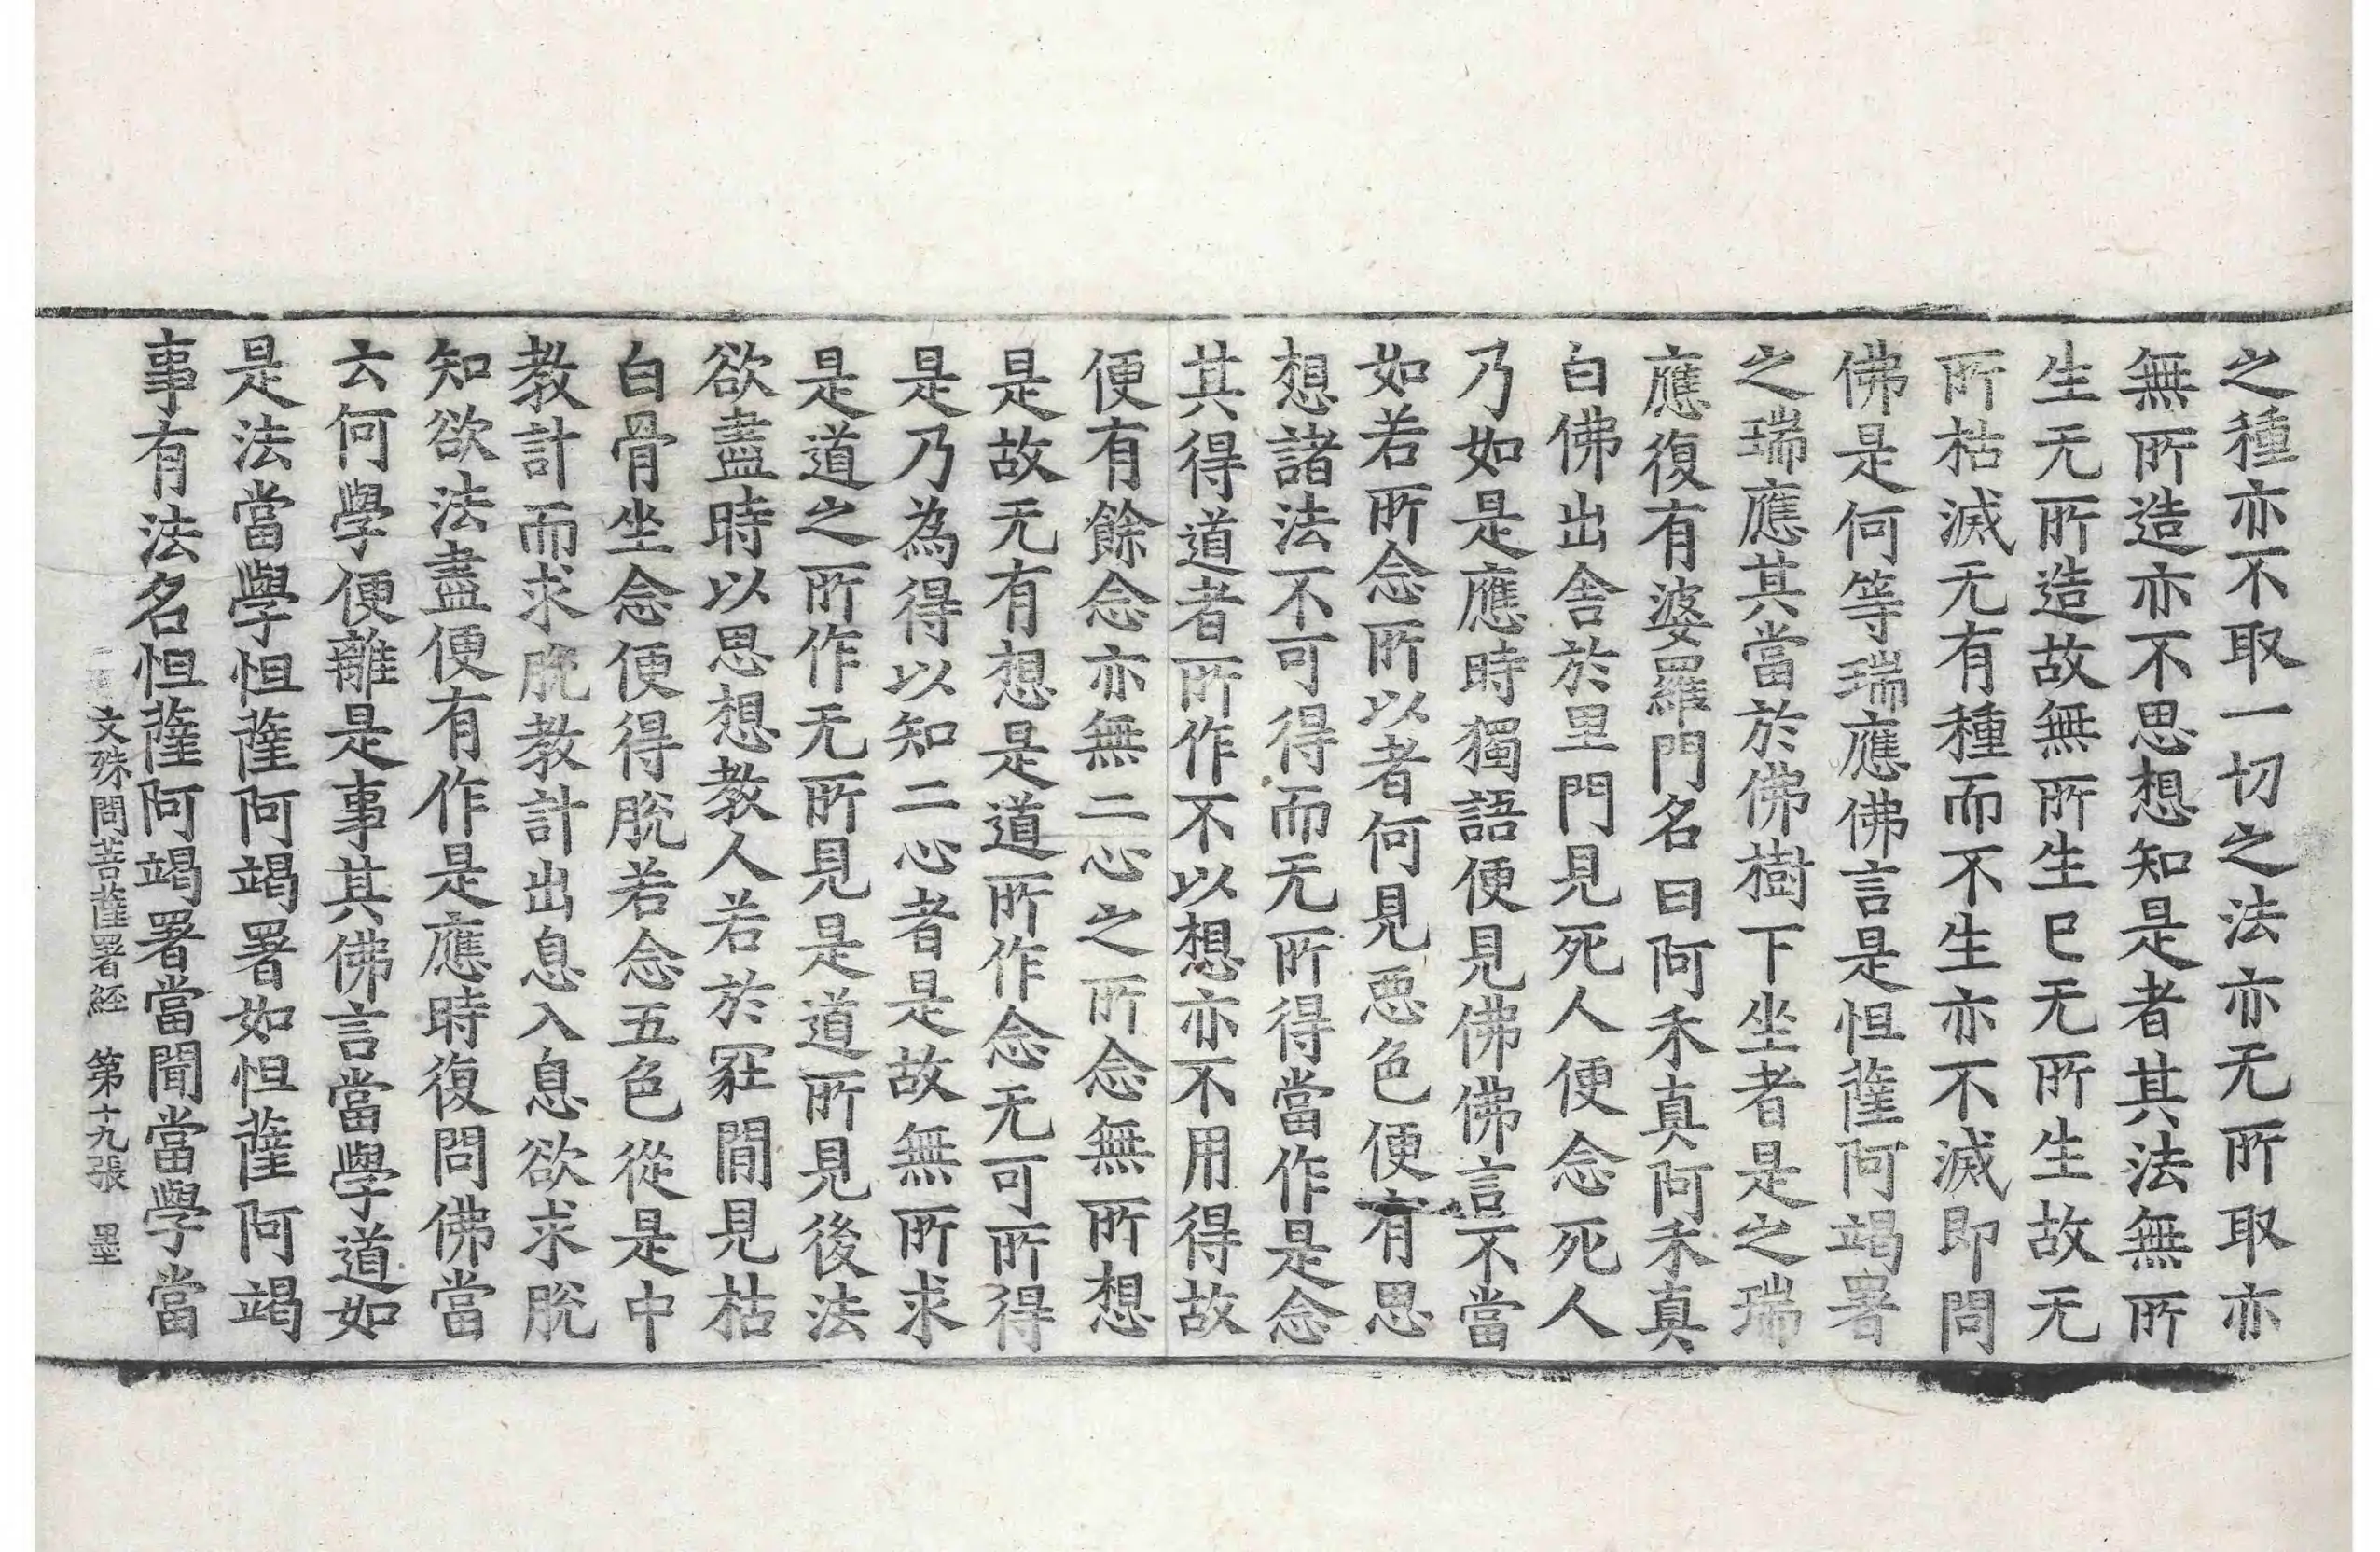 之種亦不取一切之法亦无所取亦
無所造亦不思想知是者其法無所
生无所造故無所生已无所生故无
所枯滅无有種而不生亦不滅即問
佛是何等瑞應佛言是怛薩阿竭署
之瑞應其當於佛樹下坐者是之瑞
應復有婆羅門名曰阿禾真阿禾真
白佛出舍於里門見死人便念死人
乃如是應時獨語便見佛佛言不當
如若所念所以者何見惡色便有思
想諸法不可得而无所得當作是念
其得道者所作不以想亦不用得故
便有餘念亦無二心之所念無所想
是故无有想是道所作念无可所得
是乃為得以知二心者是故無所求
是道之所作无所見是道所見後法
欲盡時以思想教人若於冢間見枯
白骨坐念便得脫若念五色從是中
教計而求脫教計出息入息欲求脫
知欲法盡便有作是應時復問佛當
云何學便離是事其佛言當學道如
是法當學怛薩阿竭署如怛薩阿竭
事有法名怛薩阿竭署當聞當學當
文殊問菩薩署經　第十九張　墨